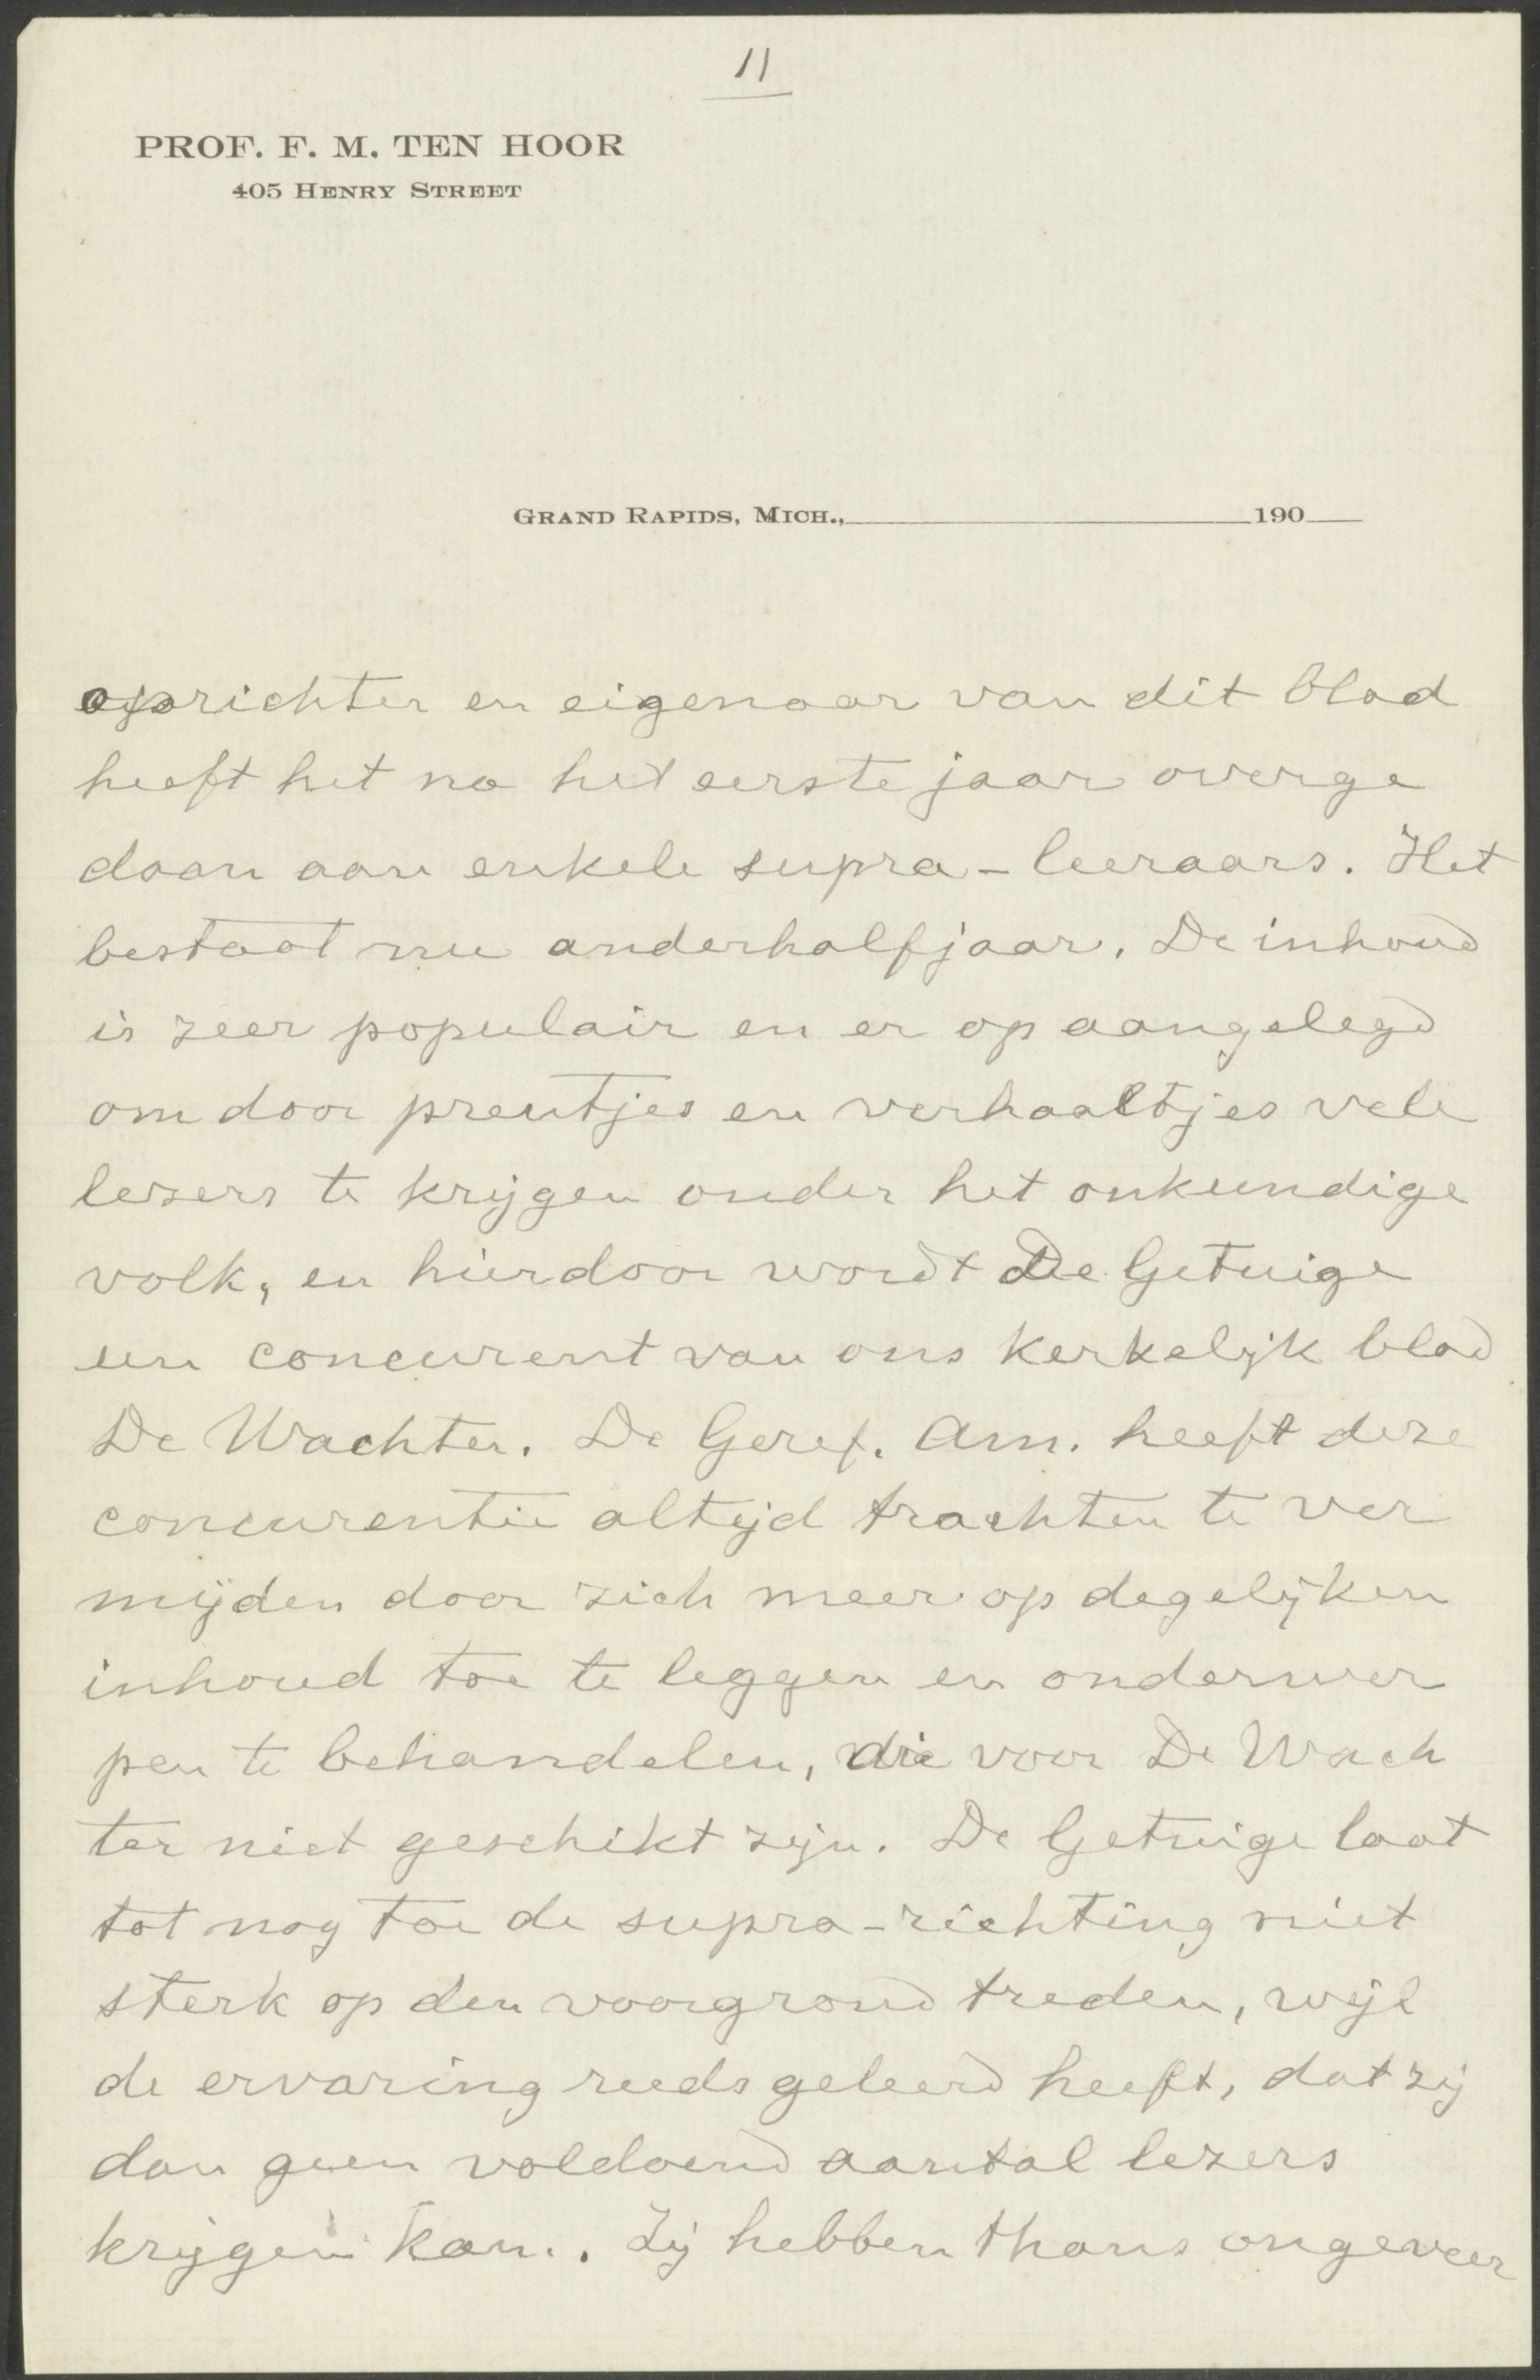 11
PROF. F. M. TEN HOOR
405 HENRY STREET
GRAND RAPIDS, MICH., 190
oprichter en eigenaar van dit blad
heeft het na het eerste jaar overge
daan aan enkele supra-leeraars. Het
bestaat nu anderhalfjaar. De inhoud
is zeer populair en er op aangelegd
om door prentjes en verhaaltjes vele
lezers te krijgen onder het onkundige
volk, en hierdoor wordt De Getuige
een concurent van ons kerkelijk blad
De Wachter. De Geref. Am. heeft deze
concurentie altijd trachten te ver
mijden door zich meer op degelijken
inhoud toe te leggen en onderwer
pen te behandelen, die voor De Wach
ter niet geschikt zijn. De Getuige laat
tot nog toe de supra-richting niet
sterk op den voorgrond treden, wijl
de ervaring reeds geleerd heeft, dat zij
dan geen voldoend aantal lezers
krijgen kan. Zij hebben thans ongeveer